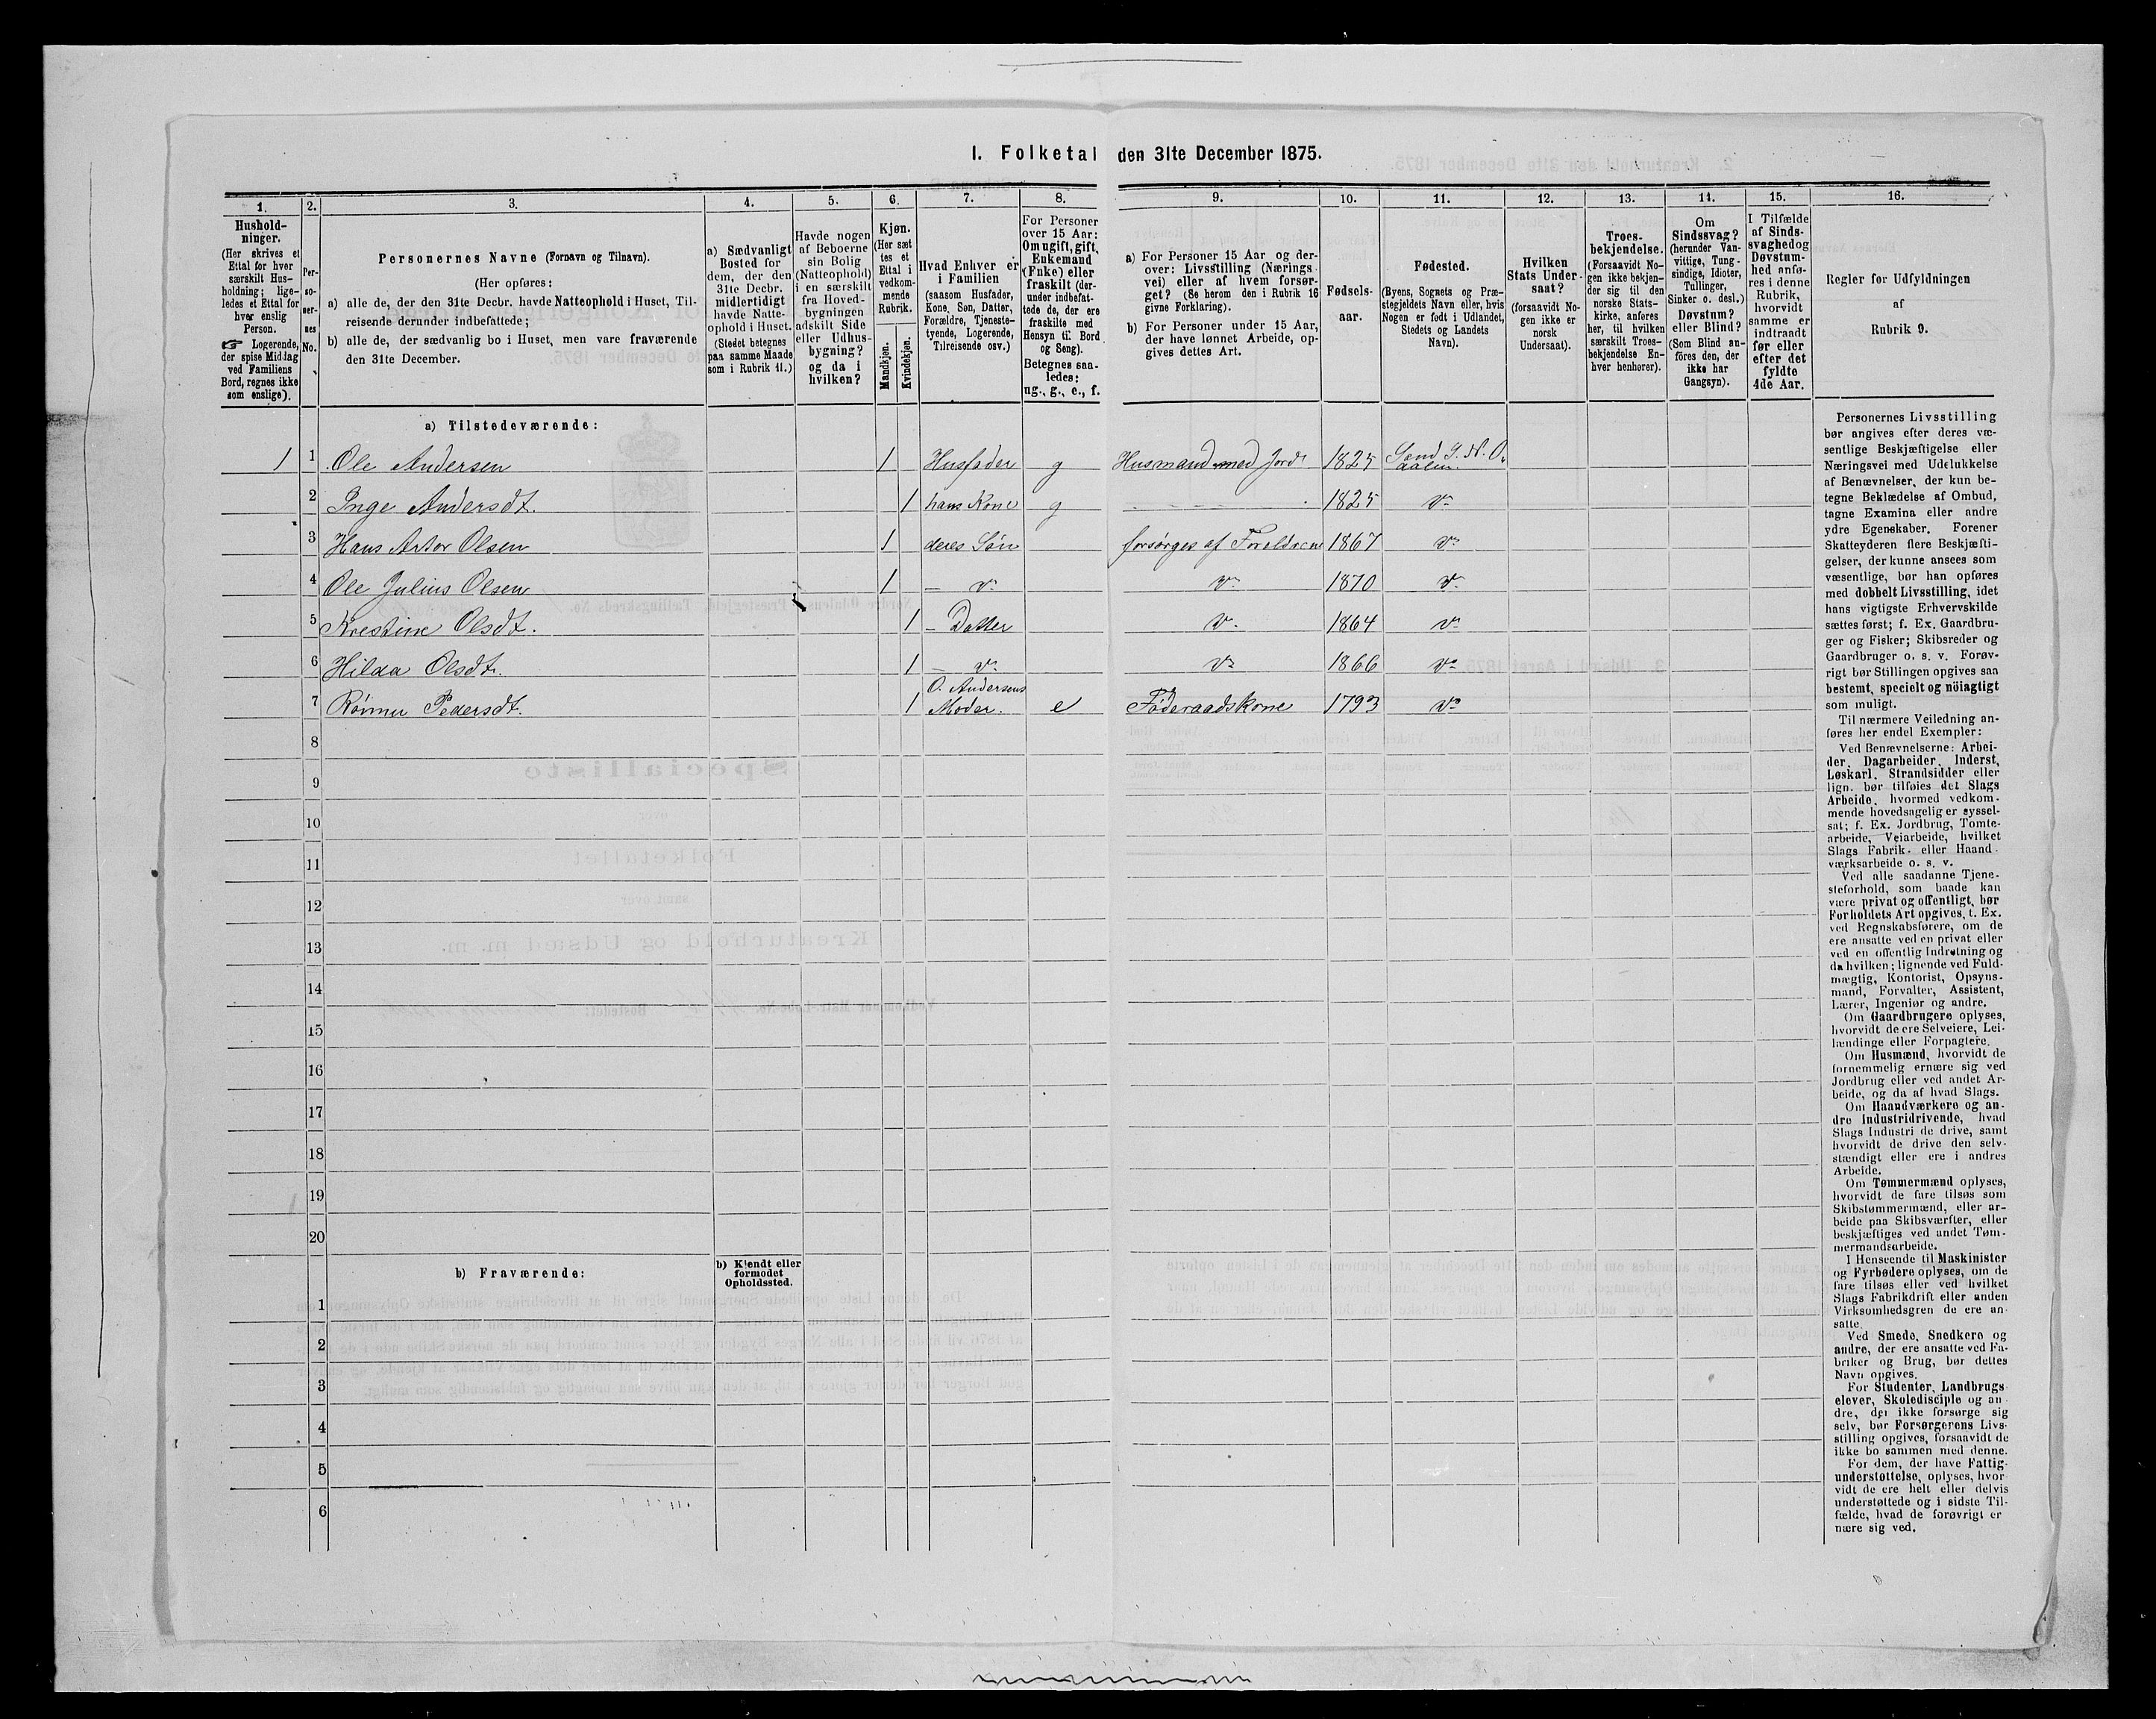 I. Folketal den 31te December 1875.
1. 2. 3. 4. 5. 6. 7. 8. 9. 10. 11. 12. 13. 14. 15. 16.
Hushold-
ninger.
(Her skrives et
Ettal for hver
særskilt Hus-
holdning; lige-
ledes et Ettal for
hver enslig
Person.
☞ Logerende,
der spise Middag
ved Familiens
Bord, regnes ikke
som enslige).
Per-
so-
ner-
nes
No.
Personernes Navne (Fornavn og Tilnavn).
(Her opføres:
a) alle de, der den 31te Decbr. havde Natteophold i Huset, Til-
reisende derunder indbefattede;
b) alle de, der sædvanlig bo i Huset, men vare fraværende
den 31te December.
a) Sædvanligt
Bosted for
dem, der den
31te Decbr.
midlertidigt
havde Natte-
ophold i Huset.
(Stedet betegnes
paa samme Maade
som i Rubrik 11.)
Havde nogen
af Beboerne
sin Bolig
(Natteophold)
i en særskilt
fra Hoved-
bygningen
adskilt Side
eller Udhus-
bygning?
og da i
hvilken?
Kjøn.
(Her sæt
tes et
Ettal i
vedkom-
mende
Rubrik.
Mandkjøn.
Kvindekjøn.
Hvad Enhver er
i Familien
(saasom Husfader,
Kone, Søn, Datter,
Forældre, Tjeneste-
tyende, Logerende,
Tilreisende osv.)
For Personer
over 15 Aar:
Om ugift, gift,
Enkemand
(Enke) eller
fraskilt (der-
under indbefat-
tede de, der ere
fraskilte med
Hensyn til Bord
og Seng).
Betegnes saa-
ledes:
ug., g., e., f.
a) For Personer 15 Aar og der-
over: Livsstilling (Nærings
vei) eller af hvem forsør-
get? (Se herom den i Rubrik 16
givne Forklaring).
b) For Personer under 15 Aar,
der have lønnet Arbeide, op-
gives dettes Art.
Fødsels-
aar.
Fødested.
(Byens, Sognets og Præ-
stegjeldets Navn eller, hvis
Nogen er født i Udlandet,
Stedets og Landets
Navn).
Hvilken
Stats Under-
saat?
(forsaavidt No-
gen ikke er
norsk
Undersaat).
Troes-
bekjendelse.
(Forsaavidt No-
gen ikke bekjen-
der sig til den
norske Stats-
kirke, anføres
her, til hvilken
særskilt Troes-
bekjendelse En-
hver henhører).
Om
Sindssvag?
(herunder Van-
vittige, Tung-
sindige, Idioter,
Tullinger,
Sinker o. desl.)
Døvstum?
eller Blind?
(Som Blind an-
føres den, der
ikke har
Gangsyn).
I Tilfælde
af Sinds-
svaghed og
Døvstum-
hed anfø-
res i denne
Rubrik,
hvorvidt
samme er
indtraadt
før eller
efter det
fyldte
4de Aar.
Regler for Udfyldningen
af
Rubrik 9.
a) Tilstedeværende:
1 1 Ole Andersen 1 Husfader g Husmand med Jord 1825 Sand S. N. O.
aalen.
2 Inge Andersdt. 1 hans Kone g 1825 do
3 Hans Antor Olsen 1 deres Søn forsørges af Foreldrene 1867 do
4 Ole Julius Olsen 1 – do do 1870 do
5 Krestine Olsdt. 1 – Datter do 1864 do
6 Hilda Olsdt. 1 – do do 1866 do
O. Andersens
7 Pedersdt. 1 Moder. e Føderaadskone 1793 do
8
9
10
11
12
13
14
15
16
17
18
19
20
b) Fraværende:
b) Kjendt eller
formodet
Opholdssted.
1
2
3
4
5
6
Personernes Livsstilling
bør angives efter deres væ-
sentlige Beskjæftigelse eller
Næringsvei med Udelukkelse
af Benævnelser, der kun be-
tegne Beklædelse af Ombud,
tagne Examina eller andre
ydre Egenskaber. Forener
Skatteyderen flere Beskjæfti-
gelser, der kunne ansees som
væsentlige, bør han opføres
med dobbelt Livsstilling, idet
hans vigtigste Erhvervskilde
sættes først; f. Ex. Gaardbru-
ger og Fisker; Skibsreder og
Gaardbruger o. s. v. Forøv-
rigt bør Stillingen opgives saa
bestemt, specielt og nöiagtigt
som muligt.
Til nærmere Veiledning an-
føres her endel Exempler:
Ved Benævnelserne: Arbei-
der, Dagarbeider, Inderst,
Løskarl, Strandsidder eller
lign. bør tilføies det Slags
Arbeide, hvormed vedkom-
mende hovedsagelig er syssel-
sat; f. Ex. Jordbrug, Tomte-
arbeide, Veiarbeide, hvilket
Slags Fabrik- eller Haand-
værksarbeide o. s. v.
Ved alle saadanne Tjene-
steforhold, som baade kan
være privat og offentligt, bør
Forholdets Art opgives, t. Ex.
ved Regnskabsførere, om de
ere ansatte ved en privat eller
ved en offentlig Indretning og
da hvilken; lignende ved Fuld-
mægtig, Kontorist, Opsyns-
mand, Forvalter, Assistent,
Lærer, Ingeniør og andre.
Om Gaardbrugere oplyses,
hvorvidt de ere Selveiere, Lei-
lændinge eller Forpagtere.
Om Husmænd, hvorvidt de
fornemmelig ernære sig ved
Jordbrug eller ved andet Ar-
beide, og da af hvad Slags.
Om Haandværkere og an-
dre Industridrivende, hvad
Slags Industri de drive, samt
hvorvidt de drive den selv-
stændigt eller ere i andres
Arbeide.
Om Tømmermænd oplyses,
hvorvidt de fare tilsøs som
Skibstømmermænd, eller ar-
beide paa Skibsværfter, eller
beskjæftiges ved andet Tøm-
mermandsarbeide.
I Henseende til Maskinister
og Fyrbødere oplyses, om de
fare tilsøs eller ved hvilket
Slags Fabrikdrift eller anden
Virksomhedsgren de ere an-
satte.
Ved Smede, Snedkere og
andre, der ere ansatte ved Fa-
briker og Brug, bør dettes
Navn opgives.
For Studenter, Landbrugs-
elever, Skoledisciple og an-
dre, der ikke forsørge sig
selv, bør Forsørgerens Livs-
stilling opgives, forsaavidt de
ikke bo sammen med denne.
For dem, der have Fattig-
understøttelse, oplyses, hvor-
vidt de ere helt eller delvis
understøttede og i sidste Til-
fælde, hvad de forøvrigt er
nære sig ved.